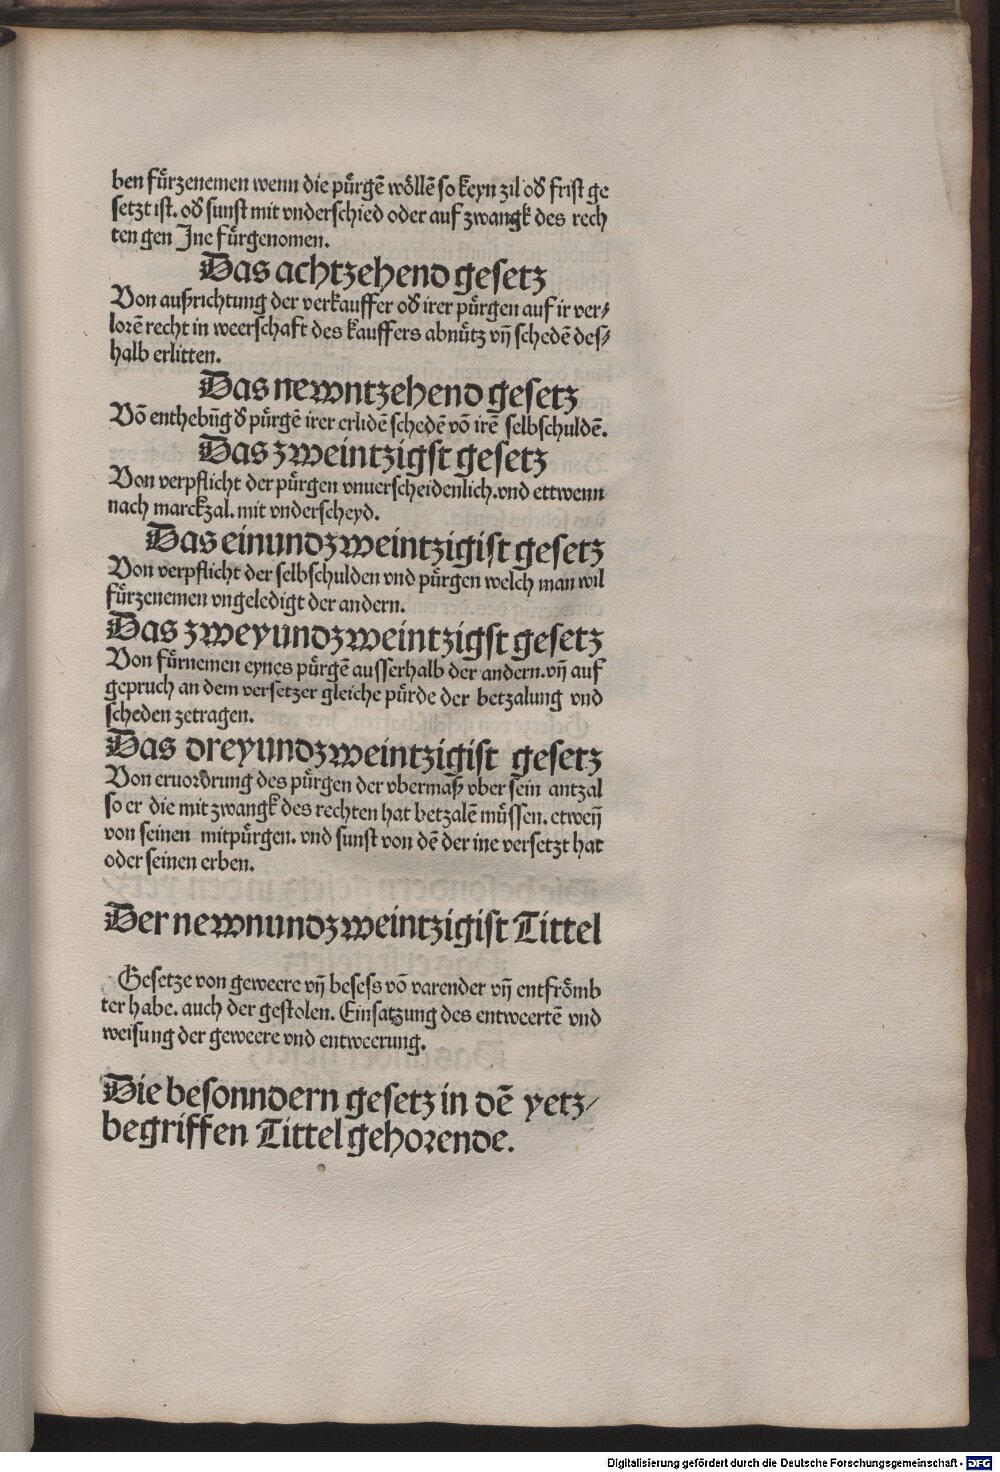 ben fürzenemen wenn die pürgē wöllē so keyn zil od̄ frist ge
setzt ist. od̄ sunst mit vnderschied oder auf zwangk des rech
ten gen Jne fürgenomen.
Das achtzehend gesetz
Von außrichtung der verkauffer od̄ irer pürgen auf ir ver⸗
lorē recht in weerschaft des kauffers abnütz vn̄ schedē des⸗
halb erlitten.
Das newntzehend gesetz
Vō enthebūg d̄ pürgē irer erlidē schedē vō irē selbschuldē.
Das zweintzigst gesetz
Von verpflicht der pürgen vnuerscheidenlich. vnd ettwenn
nach marckzal. mit vnderscheyd.
Das einundzweintzigist gesetz
Von verpflicht der selbschulden vnd pürgen welch man wil
fürzenemen vngeledigt der andern.
Das zweyundzweintzigst gesetz
Von fürnemen eynes pürgē ausserhalb der andern. vn̄ auf
gepruch an dem versetzer gleiche pürde der betzalung vnd
scheden zetragen.
Das dreyundzweintzigist gesetz
Von eruordrung des pürgen der vbermaß vber sein antzal
so er die mit zwangk des rechten hat betzalē müssen. etwen̄
von seinen mitpürgen. vnd sunst von dē der ine versetzt hat
oder seinen erben.
Der newnundzweintzigist Tittel
Gesetze von geweere vn̄ besess vō varender vn̄ entfrömb
ter habe. auch der gestolen. Einsatzung des entweertē vnd
weisung der geweere vnd entweerung.
Die besonndern gesetz in dē yetz⸗
begriffen Tittel gehorende.
Digitalisierung gefördert durch die Deutsche Forschungsgemeinschaft - DFG